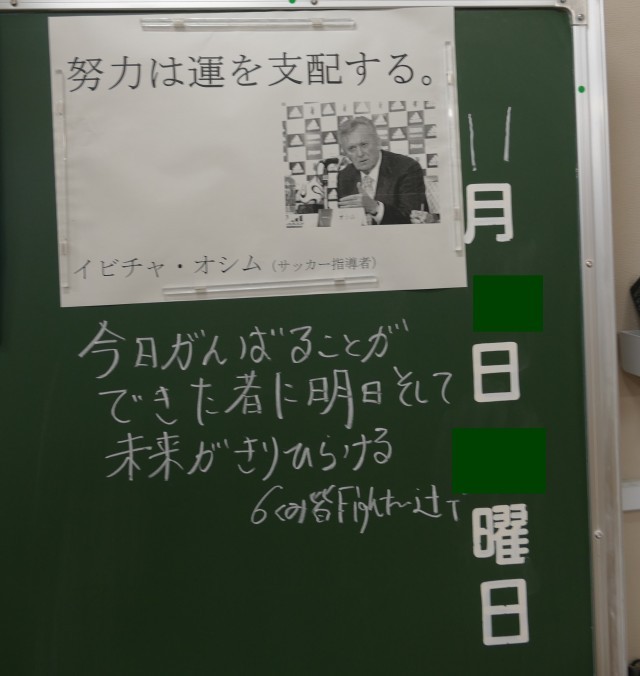 努力は運を支配する。
イビチャ・オシム（サッカー指導者）
今日がんばることが
できた者に明日そして
未来がきりひらける
6くみの皆Fight
11
月
日
曜
日